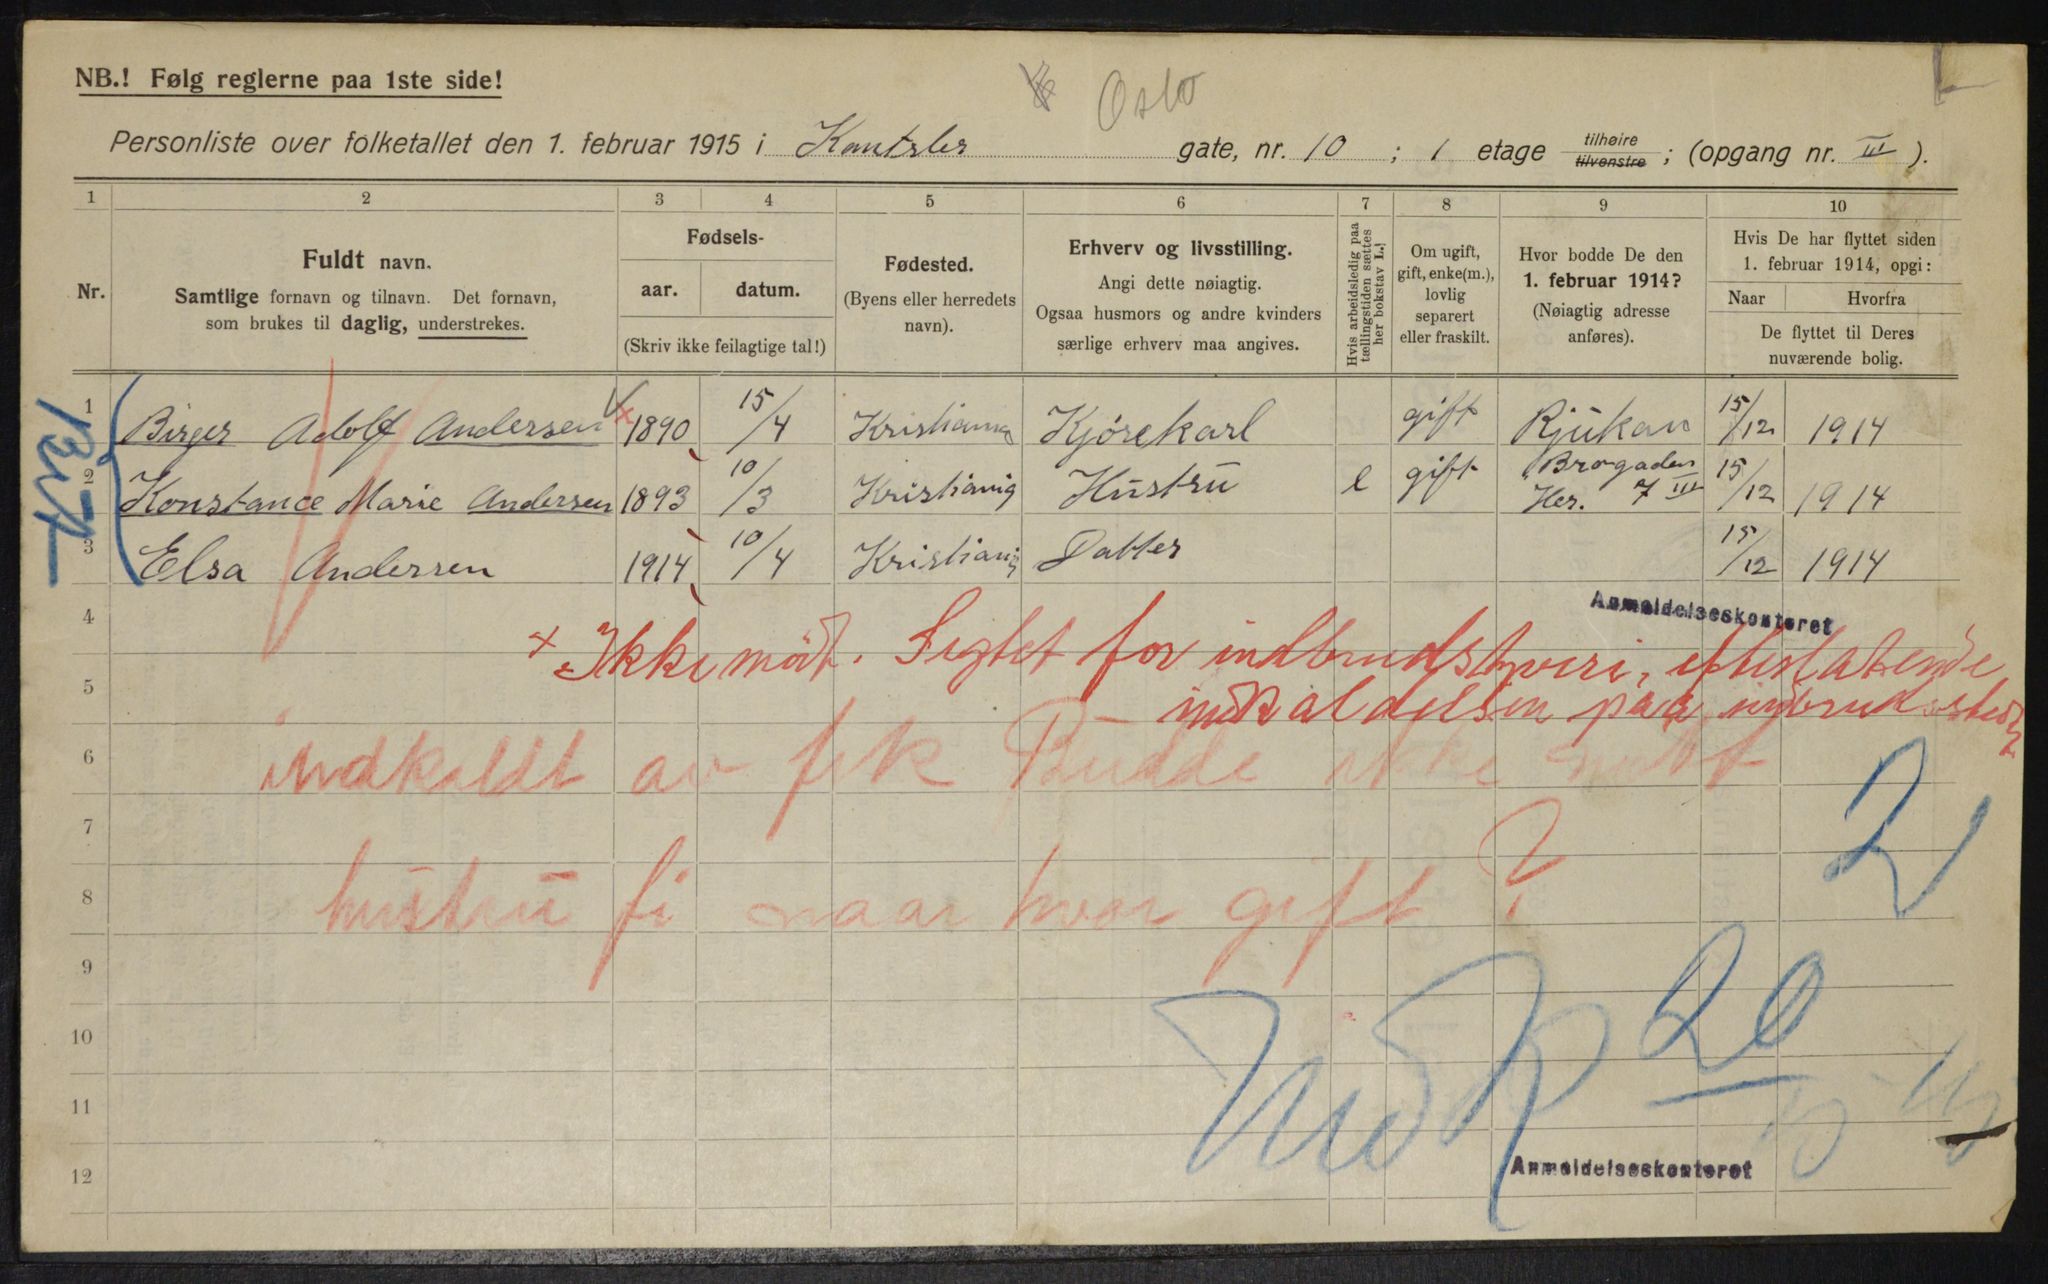 NB.! Følg reglerne paa 1ste side!
Oslo
Personliste over folketallet den 1. februar 1915 i Kantsler gate, nr. 10 ; 1 etage tilhøire tilvenstre ; (opgang nr. III ).
1 2 3 4 5 6 7 8 9 10
Nr.
Fuldt navn.
Samtlige fornavn og tilnavn. Det fornavn,
som brukes til daglig, understrekes.
Fødsels-
aar. datum.
(Skriv ikke feilagtige tal!)
Fødested.
(Byens eller herredets
navn).
Erhverv og livsstilling.
Angi dette nøiagtig.
Ogsaa husmors og andre kvinders
særlige erhverv maa angives.
Hvis arbeidsledig paa
tællingstiden sættes
her bokstav L.!
Om ugift,
gift, enke(m.),
lovlig
separert
eller fraskilt.
Hvor bodde De den
1. februar 1914?
(Nøiagtig adresse
anføres).
Hvis De har flyttet siden
1. februar 1914, opgi:
Naar Hvorfra
De flyttet til Deres
nuværende bolig.
1 Birger Adolf Andersen × 1890 15/4 Kristiania Kjørekarl gift Rjukan 15/12 1914
2 Konstance Marie Andersen 1893 10/3 Kristiania Hustru l gift Brogaden Her. 7 III 15/12 1914
3 Elsa Andersen 1914 10/4 Kristiania Datter 15/12 1914
Anmeldelseskontoret
4
× Ikke mödt. Sigtet for indbrudstyveri,
5
indkaldelsen paa
6 indkaldt av frk Budde ikke mött
7
8 hustru fi naar hvor gift ?
2
9
10
20
11
12
Anmeldelseskontoret